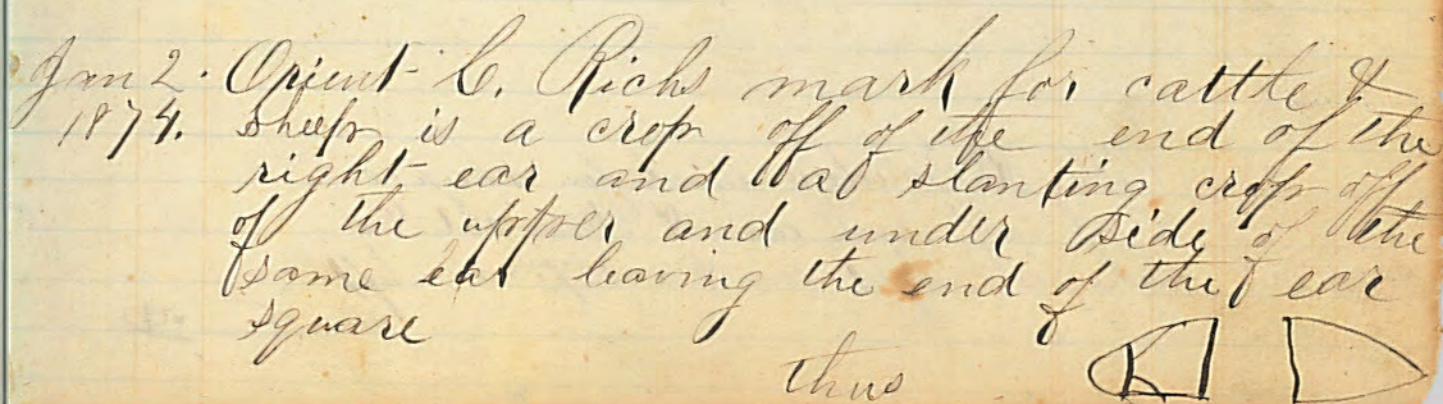 Jan 2. Orient C. Richs mark for cattle &
1874. sheep is a crop off of the end of the
right ear and a slanting crop off
of the upper and under side of the
same ear leaving the end of the ear
square
thus